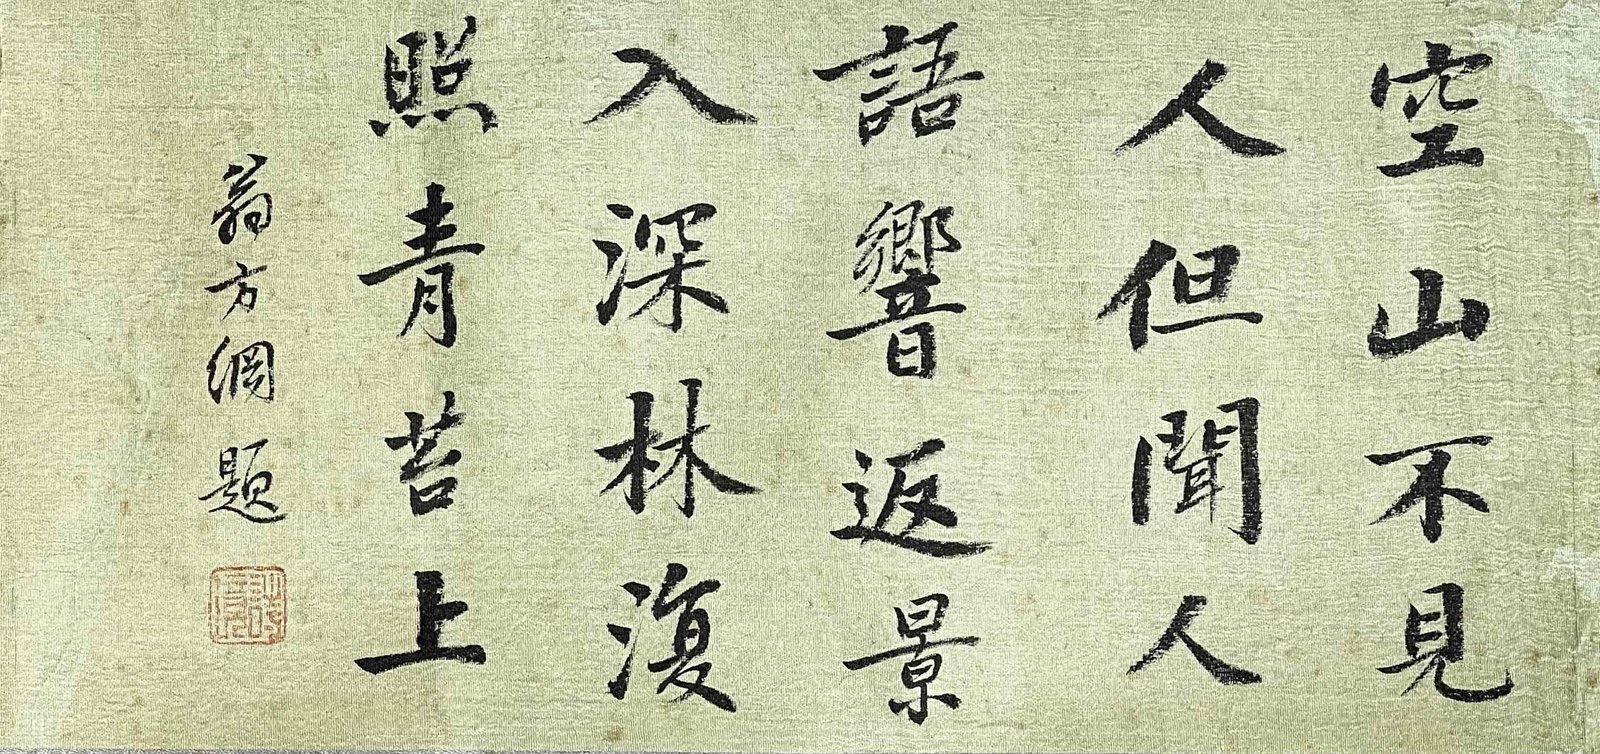 空山不見
人但聞人
語響返景
入深林復
照青苔上
翁方綱題